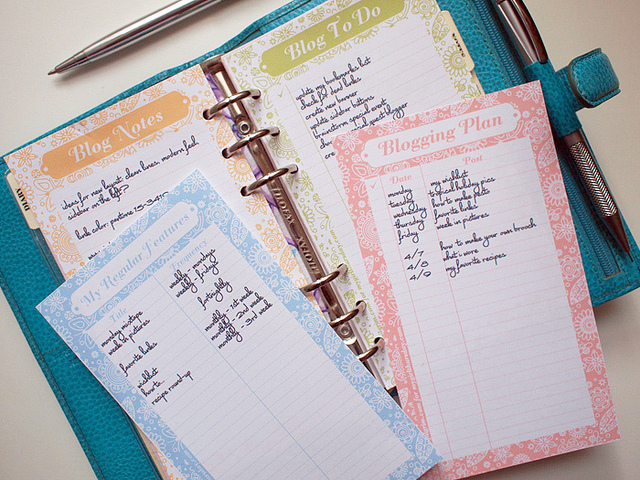 Blog Notes
ideas for new layout: clean lines. modern feel
sidebar on the left?
link color: pantone 15-
Blog To Do
update my bookmarks list
check for dead links
create new banner
update sidebar buttons
brainstorm special event
special guest blogger
cre
Blogging Plan
Date Post
monday my wishlist
tuesday school holiday pics
wednesday how to make felt
thursday favorite links
friday week in pictures
4/7 how to make your own brooch
4/8 what i wore
4/9 my favorite recipes
My Regular Features
Title Frequency
monday mixtape weekly - mondays
week in pictures weekly - fridays
favorite links fortnightly
wishlist monthly - 1st week
how to... monthly - 2nd week
recipe round-up monthly - 3rd week
DIARY